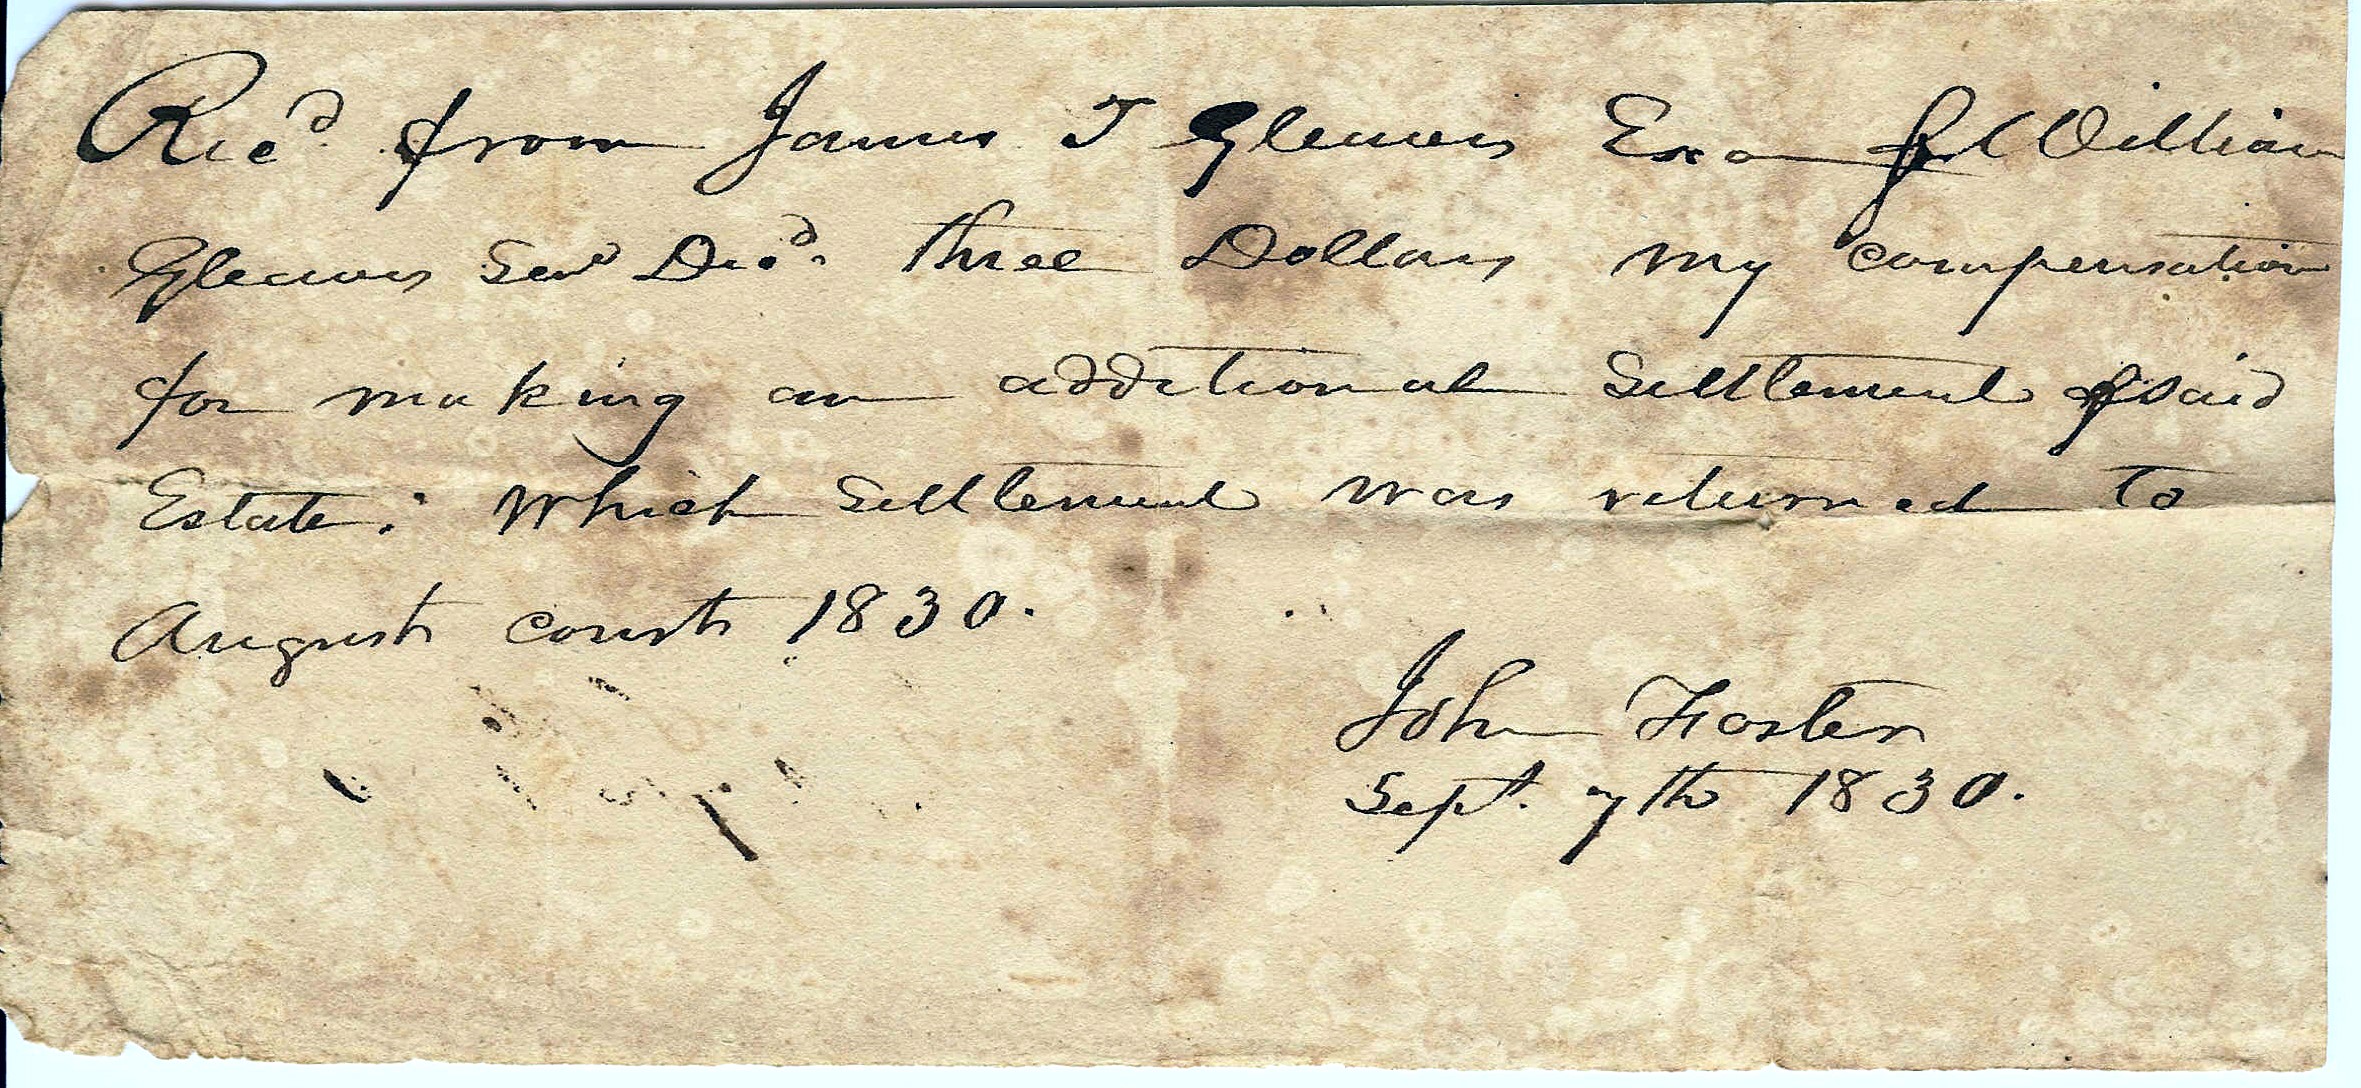 Recd from James T Gleaves Exor of William
Gleaves Senr Decd. three Dollars my compensation
for making an additional Settlement of said
Estate: which settlement was returned to
August court 1830.
John Foster
Sept. 7th 1830.